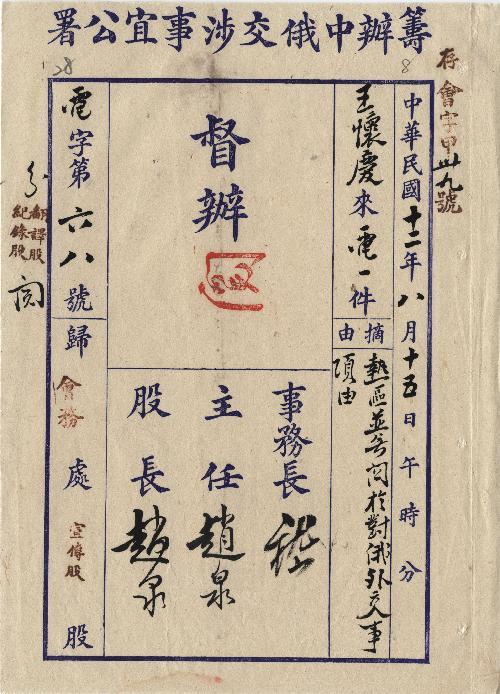 籌辦中俄交涉事宜公署
存會字甲卅九號
中華民國十二年八月十五日午時分
王懷慶來電一件
摘由
熱區並無關於對俄外交事
項由
督辦
事務長
主任趙泉
股長趙泉
電字第六八號歸會務處宣傳股股
分
翻譯股
紀錄股
閱
28
8